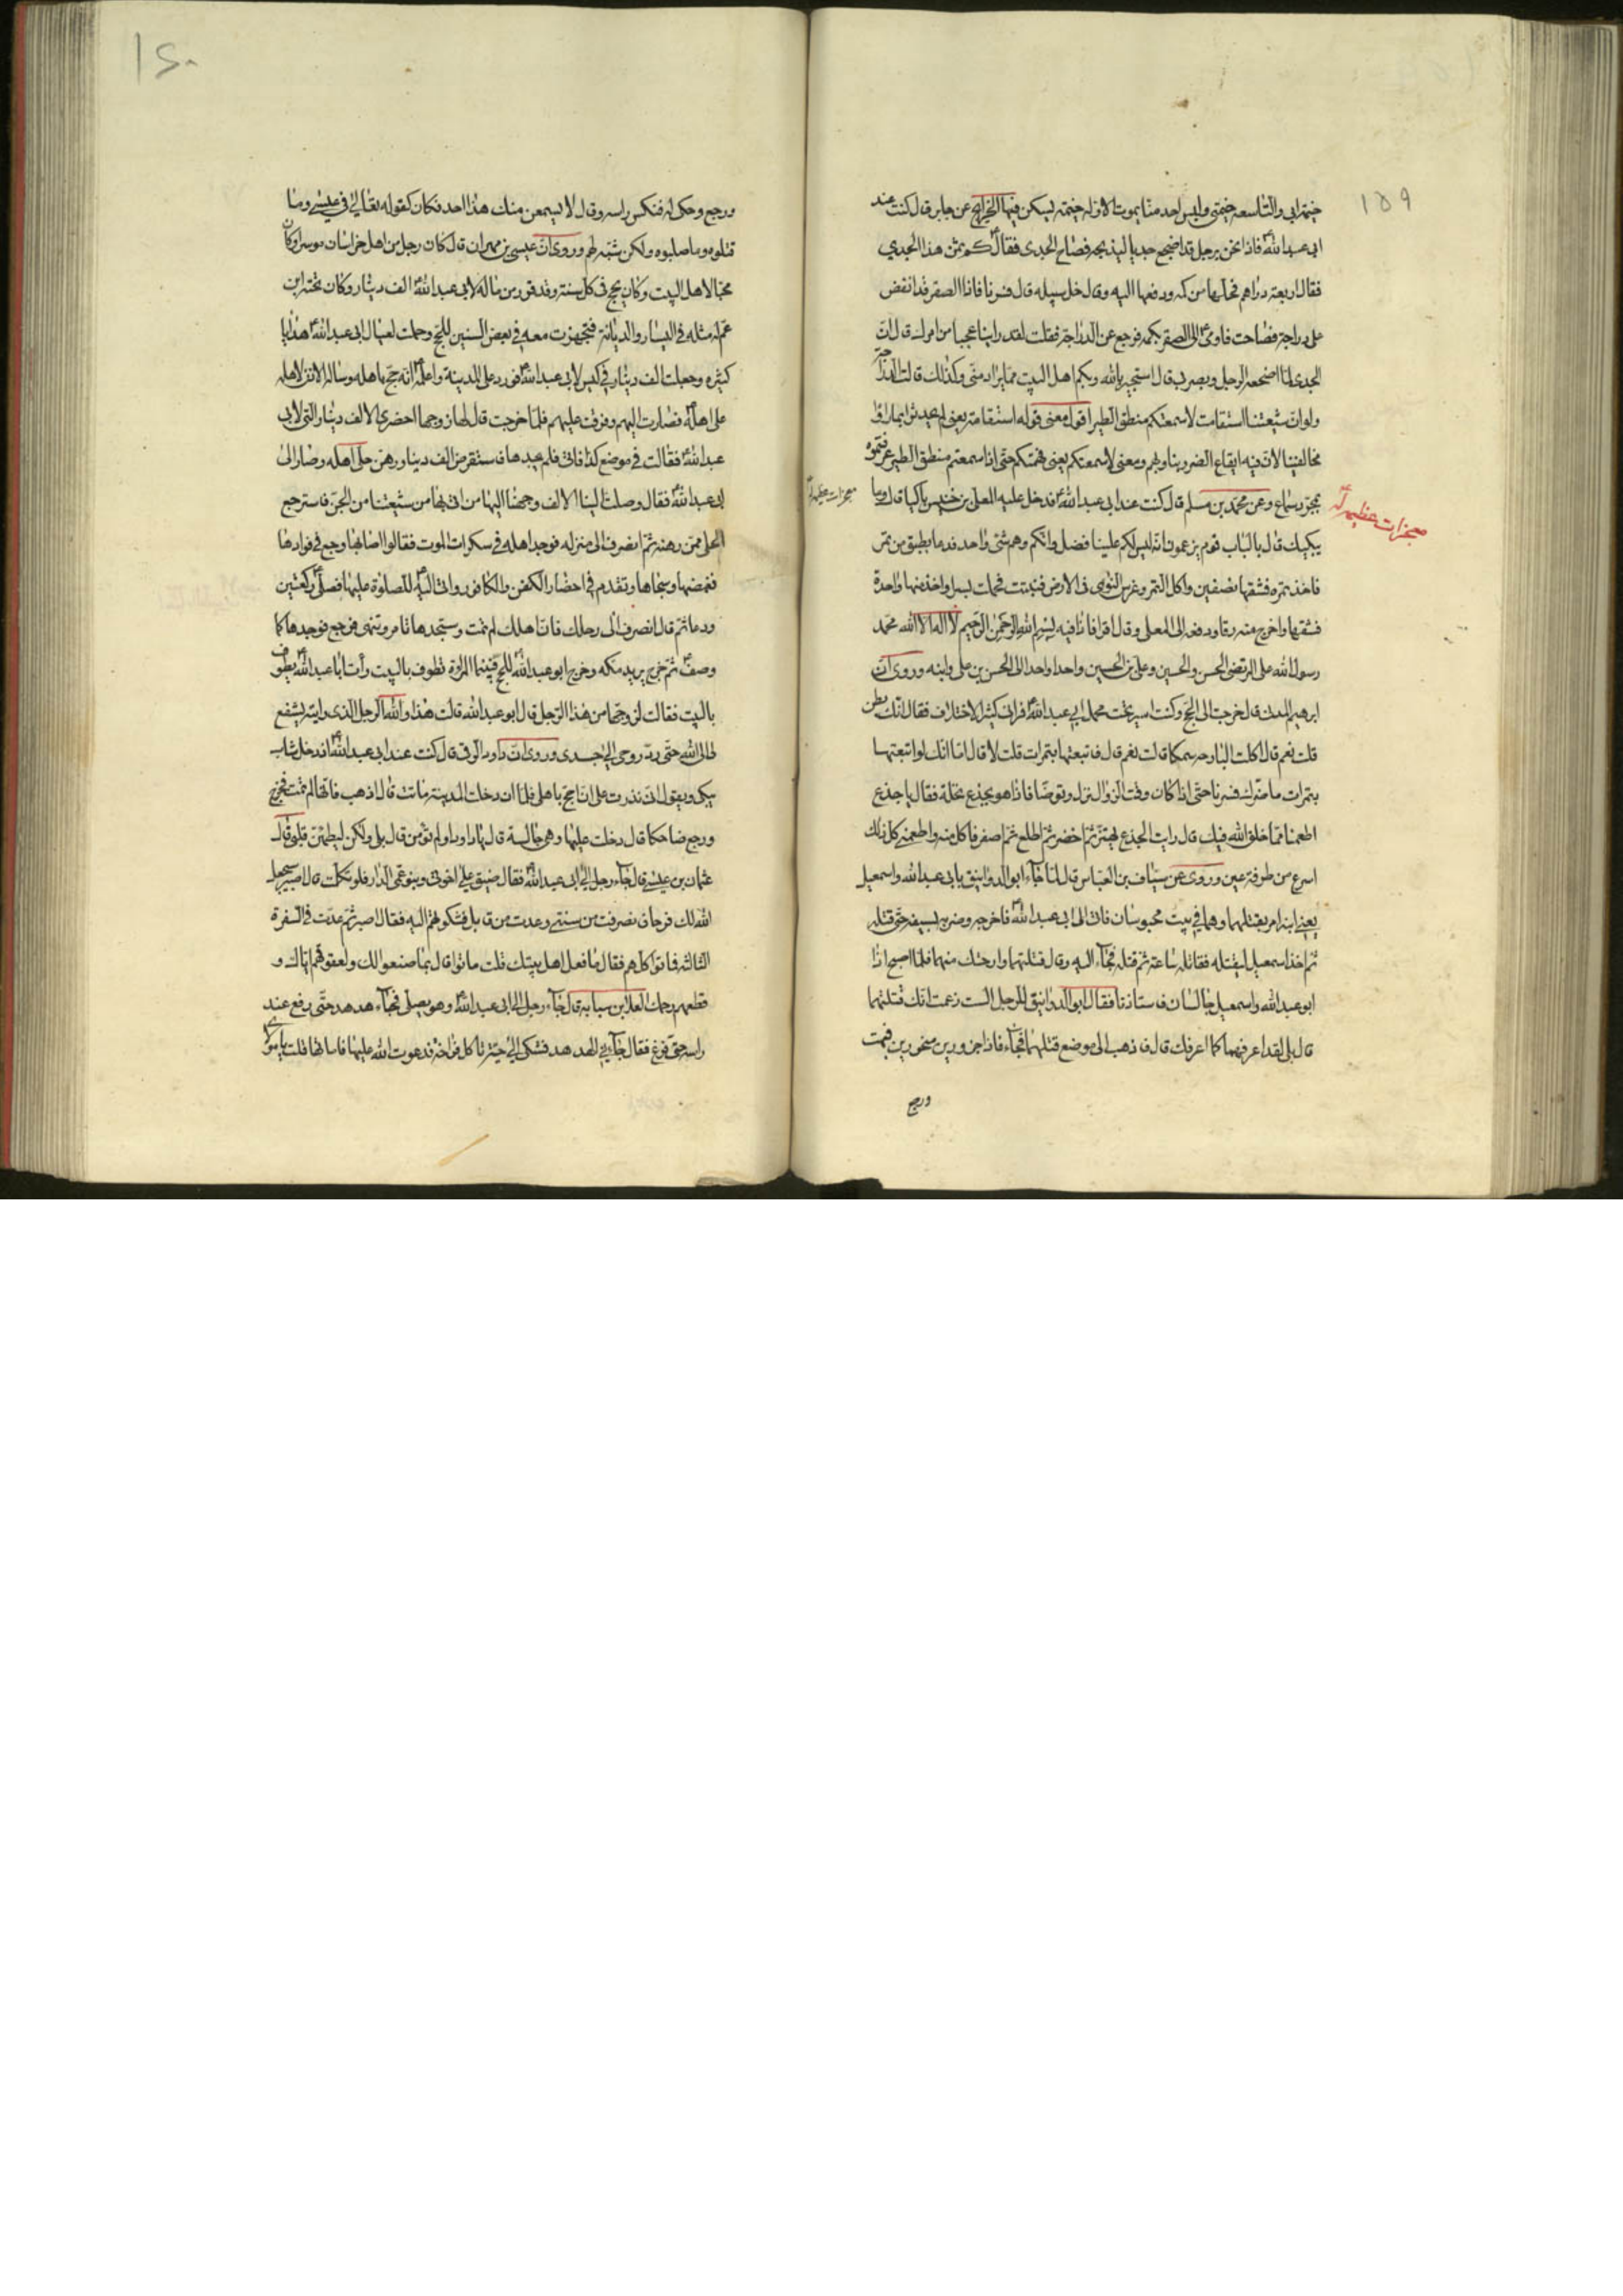 ١٥٩
خيمة ابي والتاسعة خيمتي وليس احد منا يموت الا وله خيمة يسكن فيها الخرايج عن جابر قال كنت عند
ابي عبد الله فاذا نحن برجل قد اضجع جديا ليذبحه فصاح الجدى فقال كم ثمن هذا الجدي
فقال اربعة دراهم فحلها من كمه ودفعها اليه وقال خل سبيله قال فسرنا فاذا الصقر قد انقض
على دراجة فصاحت فاومى الى الصقر بكمه فرجع عن الدراجة فقلت لقد راينا عجبا من امرك قال ان
الجدى لما اضجعه الرجل وبصر بي قال استجير بالله وبكم اهل البيت مما يراد منى وكذلك قالت الدراجة
ولو ان شيعتنا استقامت لاسمعتكم منطق الطير اقول معنى قوله استقامة يعني لم يحدثوا بما راوا
مخالفينا لان فيه ايقاع الضرر بنا وبهم ومعنى لاسمعتكم يعني فهمتكم حتى اذا سمعتم منطق الطير عرفتموه
بمجرد سماع وعن محمد بن مسلم قال كنت عند ابي عبد الله اذ دخل عليه المعلى بن خنيس باكيا قال وما
معجزات عظيمه له
معجزات عظيمه له
يبكيك قال بالباب قوم يزعمون انه ليس لكم علينا فضل وانكم وهم شئ واحد فدعا بطبق من تمر
فاخذ تمرة فشقها نصفين واكل التمر وغرس النوى فى الارض فنبتت فحملت بسرا واخذ منها واحدة
فشقها واخرج منه رقا ودفعه الى المعلى وقال اقرا فاذا فيه بسم الله الرحمن الرحيم لا اله الا الله محمد
رسول الله على المرتضى الحسن والحسين وعلي بن الحسين واحدا واحدا الى الحسن بن على وابنه وروى ان
ابرهيم المدنى قال خرجت الى الحج وكنت اسير تحت محمل ابي عبد الله فرانى كثير الاختلاف فقال انك بطن
قلت نعم قال اكلت البارحة سمكا قالت نعم قال فاتبعتها بتمرات قلت لا قال اما انك لو اتبعتها
بتمرات ما ضرك فسرنا حتى اذا كان وقت الزوال نزل وتوضا فاذا هو بجذع نخلة فقال يا جذع
اطعمنا مما خلق الله فيك قال رايت الجذع يهتز ثم اخضر ثم اطلع ثم اصفر فاكل منه واطعمني كل ذلك
اسرع من طرفة عين وروى عن سياف بن العباس قال لما جاء ابو الدوانيق بابي عبد الله واسمعيل
يعني ابنه امر بقتلهما وهما في بيت محبوسان فاتى الى ابي عبد الله فاخرجه وضربه بسيفه حتى قتله
ثم اخذ اسمعيل ليقتله فقاتله ساعة ثم قتله فجاء اليه وقال قتلتهما وارحتك منهما فلما اصبح اذا
ابو عبد الله واسمعيل جالسان فاستاذنا فقال ابو الدوانيق للرجل الست زعمت انك قتلتهما
قال بلى لقد اعرفهما كما اعرفك قال فاذهب الى موضع قتلتهما فجاء فاذا جزورين منحورين فبهت
ورجع
١٤٠
ورجع وحكى له فنكس راسه وقال لا يسمعن منك هذا احد فكان كقوله تعالى في عيسى وما
قتلوه وما صلبوه ولكن شبه لهم وروى ان عيسى بن مهران قال كان رجل من اهل خراسان موسرا وكان
محبا لاهل البيت وكان يحج فى كل سنة وقد قرر من ماله لابي عبد الله الف دينار وكان تحته ابنة
عم له مثله في اليسار والديانة فتجهزت معه في بعض السنين للحج وحملت لعيال ابي عبد الله هدايا
كثيره وجعلت الف دينار في كيس لابي عبد الله فورد على المدينة واعلمه انه حج باهله وساله الاذن لاهله
على اهله فصارت اليهم وفرقت عليهم فلما خرجت قال لها زوجها احضرى الالف دينار التي لابي
عبد الله فقالت في موضع كذا فاتى فلم يجدها فاستقرض الف دينار ورهن حلى اهله وصار الى
ابي عبد الله فقال وصلت الينا الالف وجهنا اليها من اتى بها من شيعتنا من الجن فاسترجع
الحلى ممن رهنه ثم انصرف الى منزله فوجد اهله في سكرات الموت فقالوا اصابها وجع في فوادها
فغمضها وسجاها وتقدم في احضار الكفن والكافور واتى اليه للصلوة عليها فصلى ركعتين
ودعا ثم قال انصرف الى رحلك فان اهلك لم تمت وستجدها تامر وتنهى فرجع فوجدها كما
وصف ثم خرج يريد مكه وخرج ابو عبد الله للحج فبينما المراة تطوف بالبيت رأت ابا عبد الله يطوف
بالبيت فقالت لزوجها من هذا الرجل قال ابو عبد الله قالت هذا والله الرجل الذى رايته يشفع
لى الى الله حتى رد روحى الى جسدى وروى ان داود الرقي قال كنت عند ابي عبد الله اذ دخل شاب
يبكى ويقول انى نذرت على ان احج باهلى فلما ان دخلت المدينة ماتت قال اذهب فانها لم تمت فخرج
ورجع ضاحكا قال دخلت عليها وهى جالسة قال يا داود اولم تؤمن قال بلى ولكن ليطمئن قلبى قال
عثمان بن عيسى قال جاء رجل الى ابي عبد الله فقال ضيق على اخوتى وبنو عمى الدار فلو تكلمت قال اصبر سيجعل
الله لك فرجا فانصرفت من سنتى وعدت من قابل فشكوتهم اليه فقال اصبر ثم عدت في السفرة
الثالثه فاتوا كلهم فقال ما فعل اهل بيتك قلت ماتوا قال بما صنعوا لك ولعقوقهم اياك و
قطعهم رحمك العلا بن سيابة قال جاء رجل الى ابي عبد الله وهو يصلى فجاء هدهد حتى وقع عند
راسه حتى فرغ فقال جاءني الهدهد فشكى الى حية تاكل فراخه فدعوت الله عليها فاماتها قلت يا مولاى